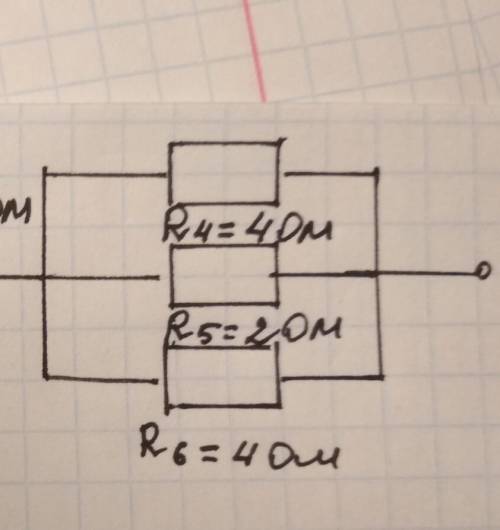 Ом
R4=4 Ом
R5=2 Ом
R6=4 Ом